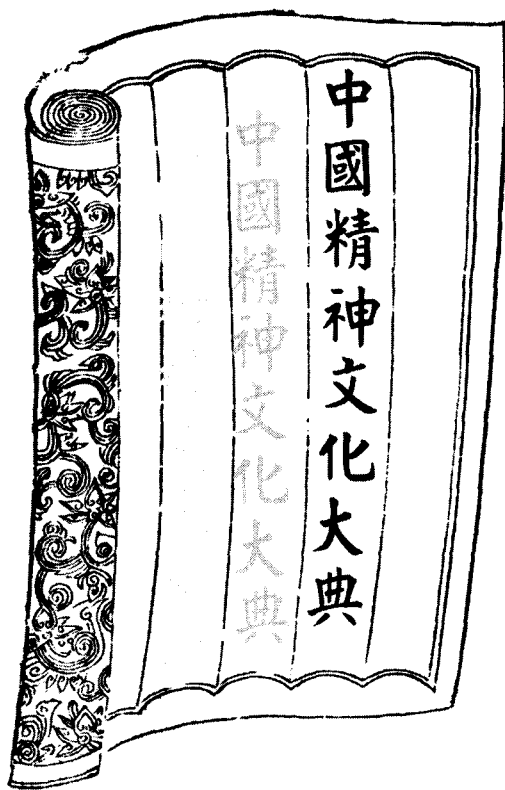 中國精神文化大典
中國精神文化大典